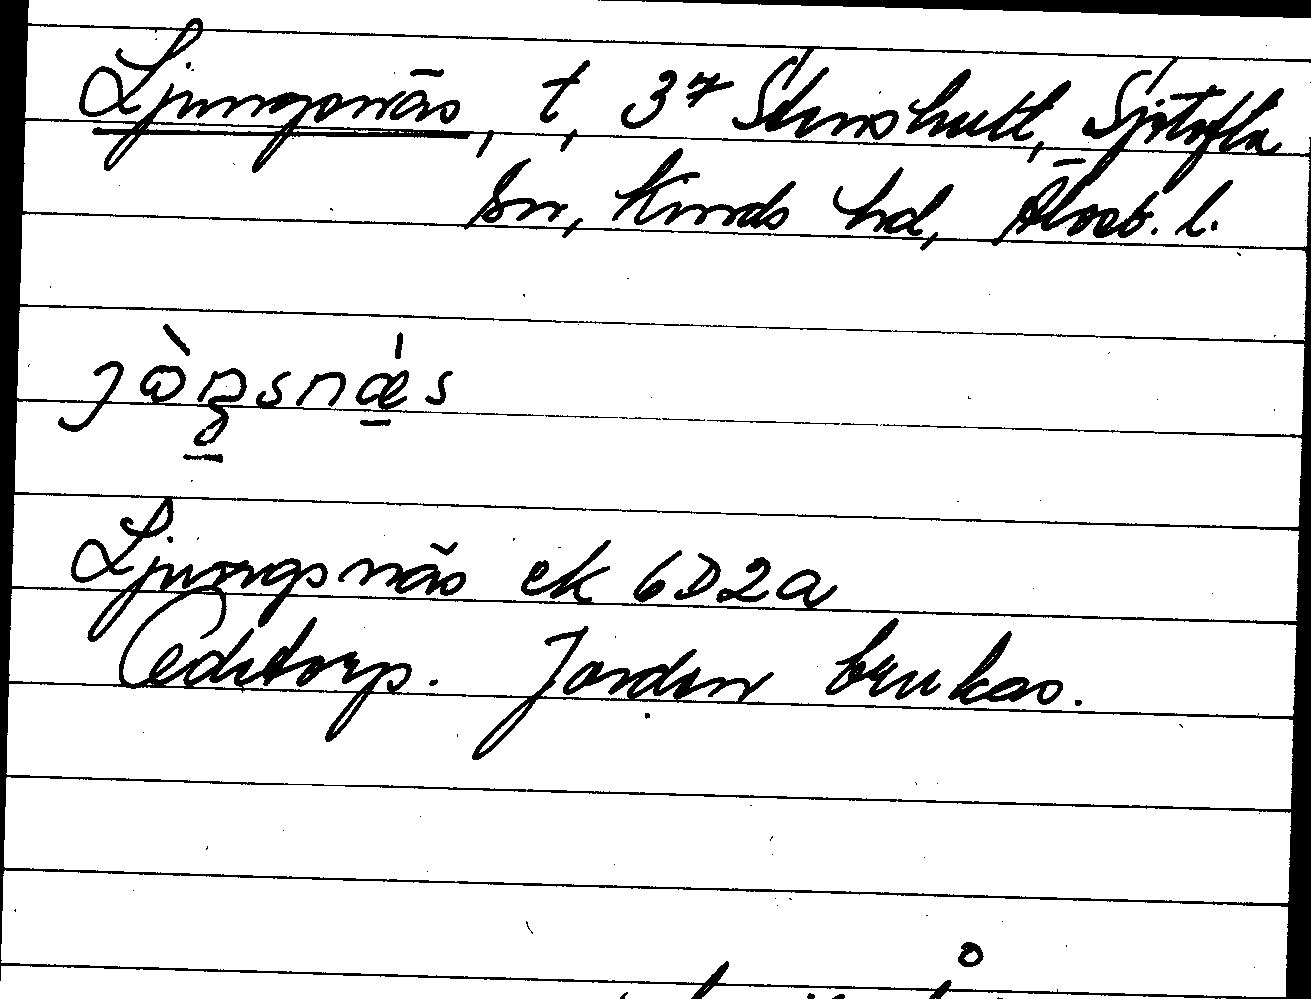 Ljungsnäs, t, 3⁷ Stenshult, Sjötofta
sn, Kinds hd, Älvsb. l.
jò̵ŋsnǽs
Ljungsnäs ek 6D2a
Ödetorp. Jorden brukas.